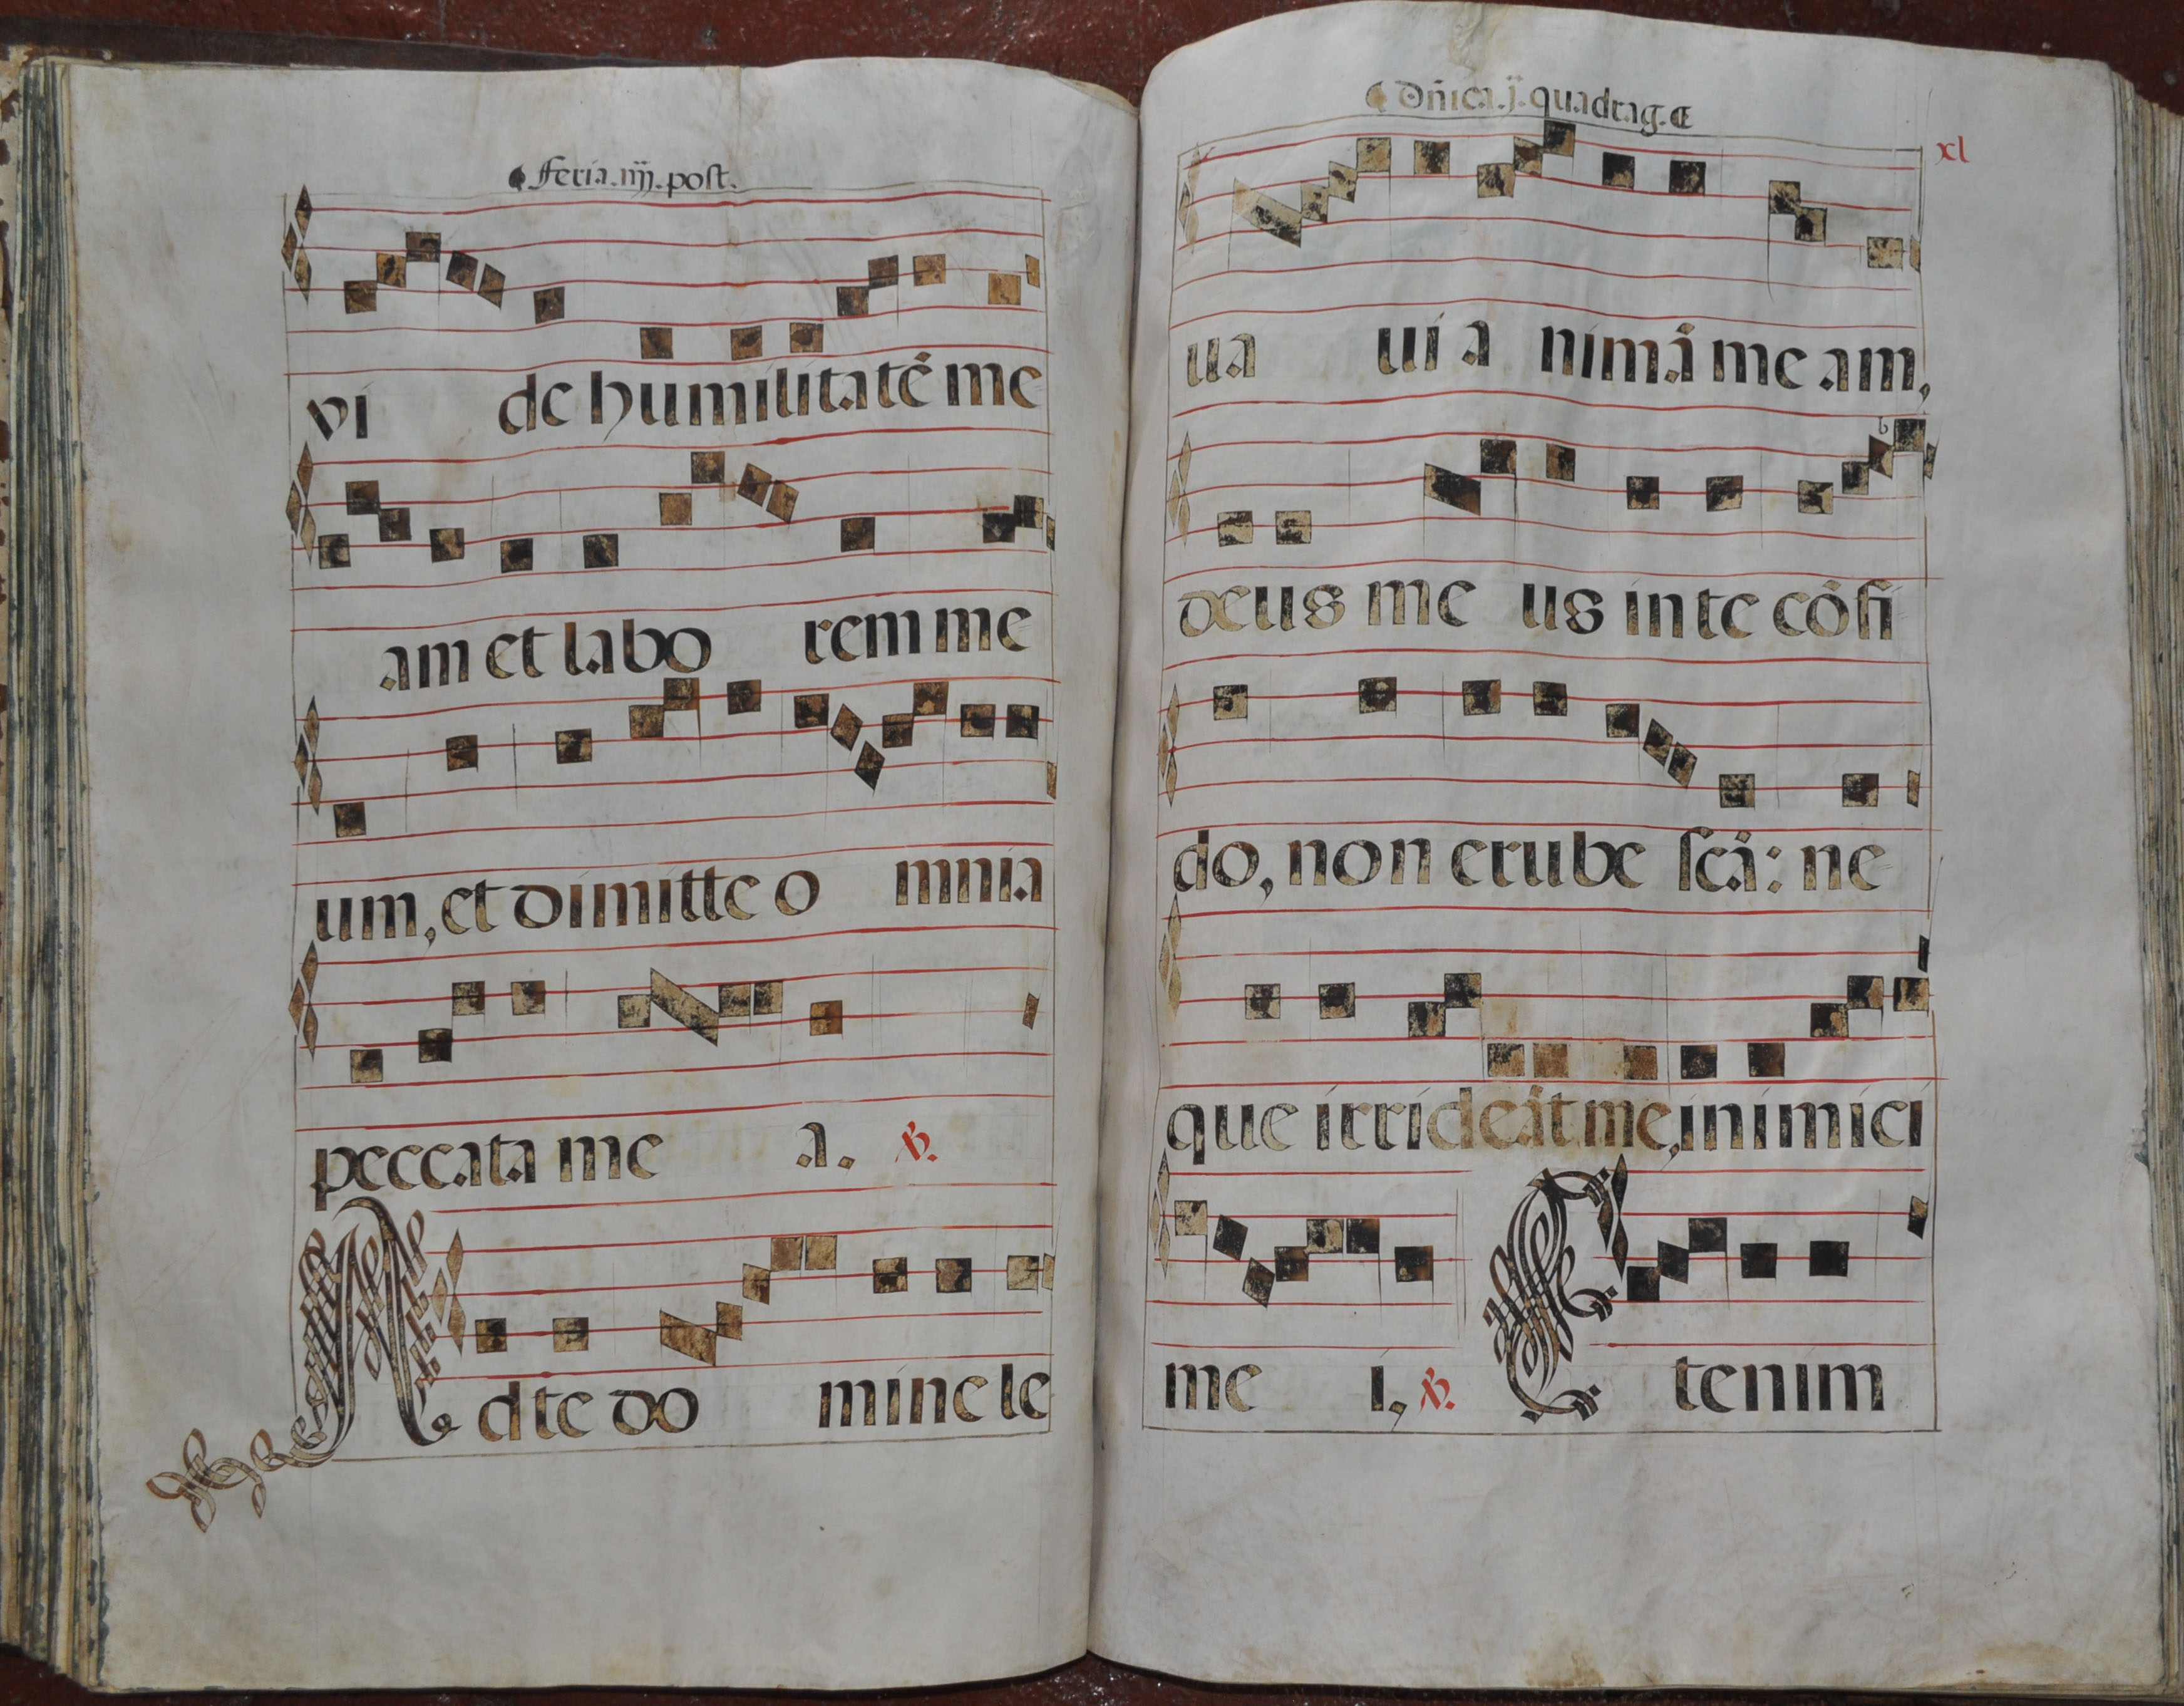 Feria.iiij.post.
vi de humilitatē me
am et labo rem me
um, et dimitte o mnia
peccata me a. ℟.
Ad te do mine le
Dñica.j.quadrag.
xl
ua ui a nimā me am,
deus me us in te cōfi
do, non erube ſcā: ne
que irrideāt me, inimici
me i, ℟. Etenim